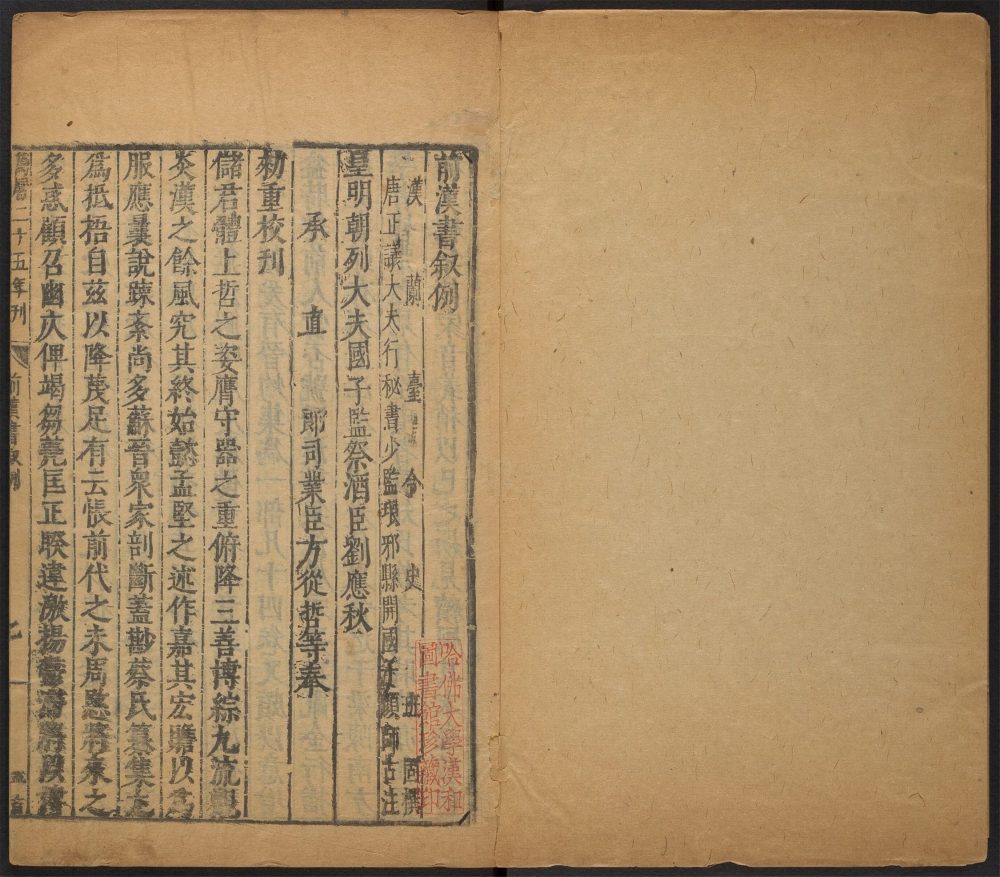 前漢書叙例
漢蘭臺令史班固撰
唐正議大夫行秘書少監琅邪縣開國子顏師古注
皇明朝列大夫國子監祭酒臣劉應秋
承直郎司業臣方從哲等奉
勑重校刊
儲君體上哲之姿膺守器之重俯降三善博綜九流觀
炎漢之餘風究其終始懿孟堅之述作嘉其宏贍以爲
服應曩說踈紊尚多蘇晉衆家剖斷蓋尠蔡氏纂集尤
爲抵梧自兹以降蔑足有云悵前代之未周愍將來之
多惑顧召幽仄俾竭芻蕘匡正睽違激揚鬱滯將以
萬曆二十五年刊
前漢書叙例
哈佛大學漢和
圖書館珍藏印